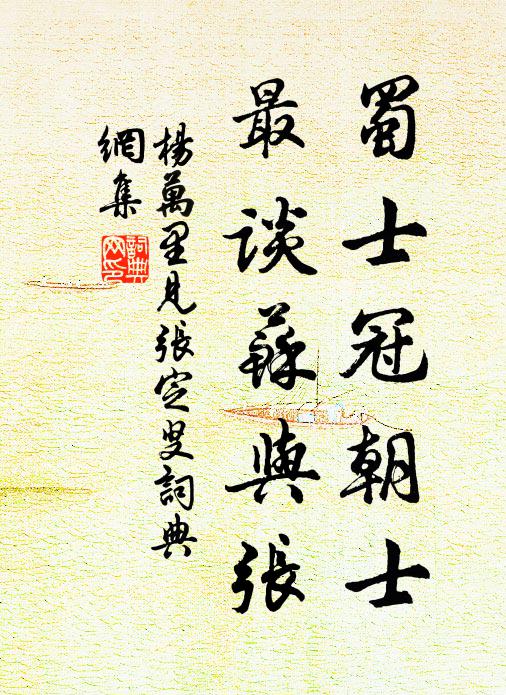 蜀士冠朝士
最談蘇與張
楊萬里見張定叟詞典
網集
詞典網印